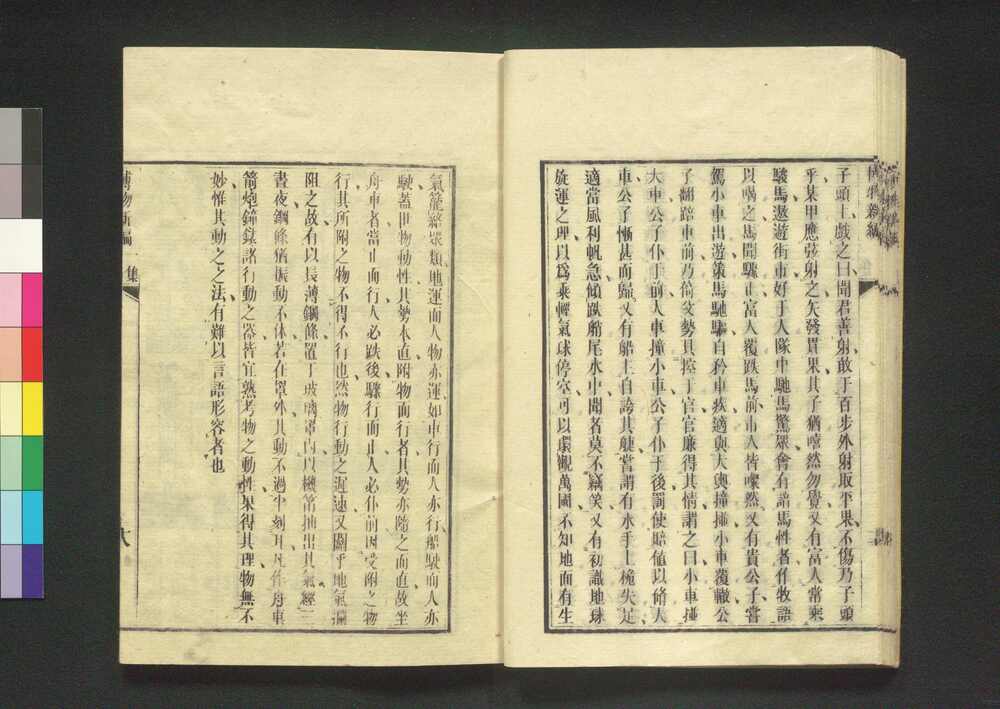 子頭上戲之曰聞君善射敢于百步外射取平果不傷乃子頭
乎某甲應弦射之矢發貫果其子猶嘻然勿覺又有富人常乘
駿馬遨遊街市好于人隊中馳馬驚眾會有諳馬性者作牧語
以喝之馬聞驟止富人覆跌馬前市人皆嚛然又有貴公子嘗
駕小車出遊策馬馳驅自矜車疾適與大輿撞掽小車覆轍公
子翻踣車前乃倚父勢具控于官官廉得其情謂之曰小車掽
大車公子仆于前大車撞小車公子仆于後罰使賠值以脩大
車公子慚甚而歸又有船主自誇其駛嘗謂有水手上桅失足
適當風利帆急傾跌船尾水中聞者莫不竊笑又有初識地球
旋運之理以爲乘輕氣球停空可以環觀萬國不知地面有生
氣籠絡眾類地運而人物亦運如車行而人亦行船駛而人亦
駛蓋世物動性其勢本直附物而行者其勢亦隨之而直故坐
舟車者當止而行人必跌後驟行而止人必仆前因受附之物
行其所附之物不得不行也然物行動之遲速又關乎地氣攔
阻之故有以長薄鋼條置于玻璃罩內以機筩抽出其氣經三
晝夜鋼條猶振動不休若在罩外其動不過半刻耳凡作舟車
箭炮鐘錶諸行動之器皆宜熟考物之動性果得其理物無不
妙惟其動之之法有難以言語形容者也
博物新編一集